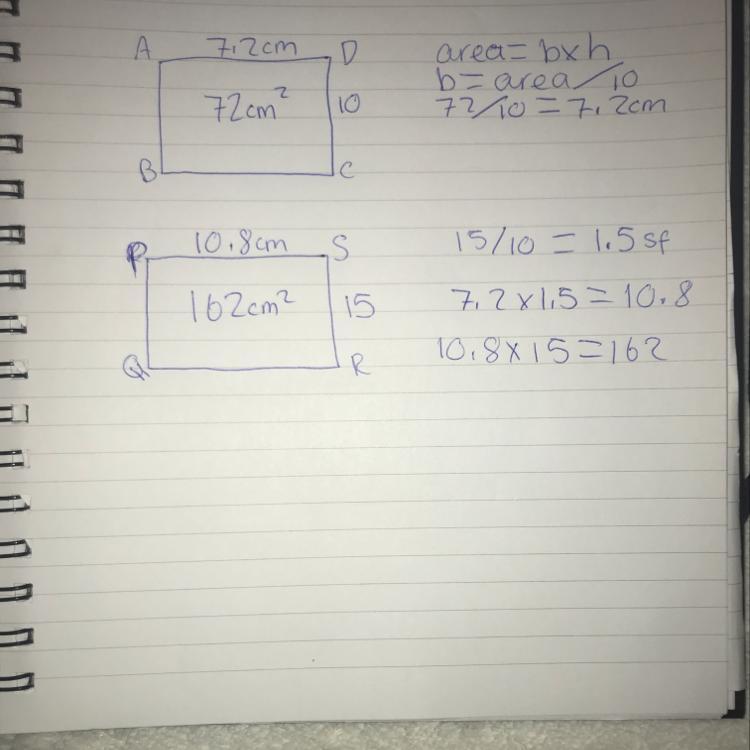 A 7.2cm D area = b x h
b = area / 10
72cm² 10 72/10 = 7.2cm
B C
P 10.8cm S 15/10 = 1.5 sf
162cm² 15 7.2 x 1.5 = 10.8
10.8 x 15 = 162
Q R